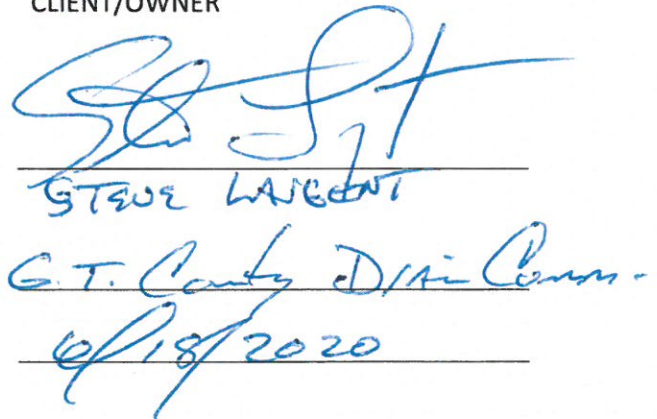 CLIENT/OWNER
STEVE LARGENT
G.T. County Drain Comm.
6/18/2020